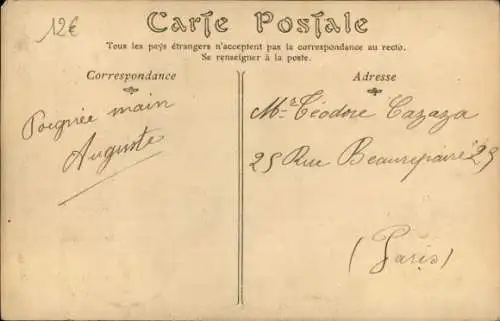 12€
Carte Postale
Tous les pays étrangers n'acceptent pas la correspondance au recto.
Se renseigner à la poste.
Correspondance
Adresse
Poignée main
Auguste
Mr Téodore Cazaza
25 Rue Beaurepaire 25
(Paris)